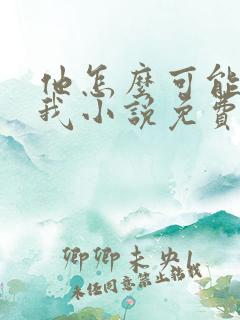 他怎麼可能
我小說免費
卿卿未央
未经同意禁止转载